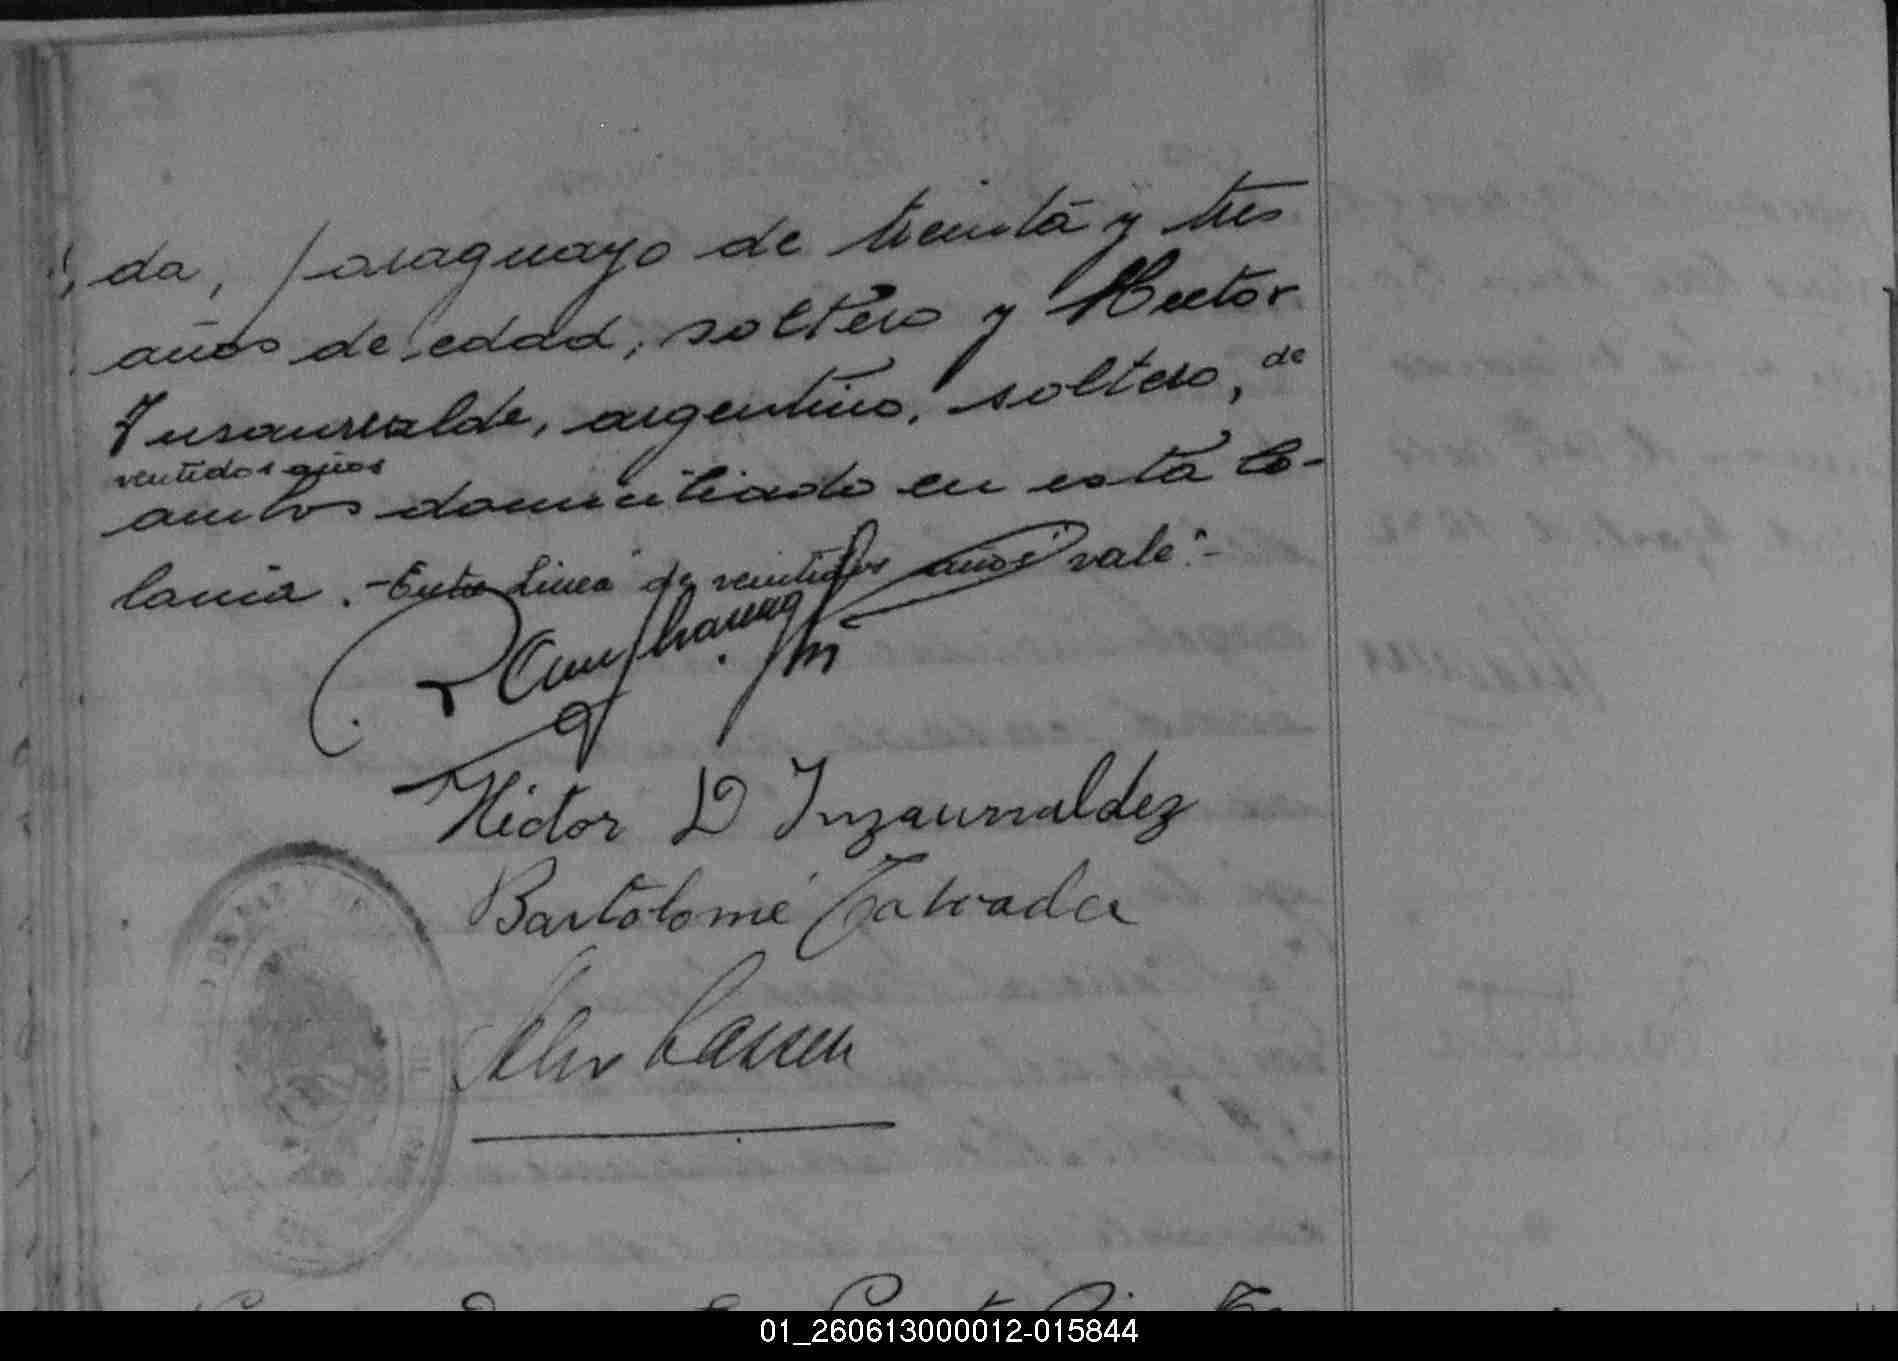 da, paraguayo de treinta y tres
años de edad, soltero y Hector
Insaurralde, argentino, soltero, de
ventidos años
ambos domiciliado en esta Co-
lonia. -Entre Linea "de ventidos años" vale"-
Hector D Inzaurraldez
Bartolomé Tatrada
Lassen
01_260613000012-015844